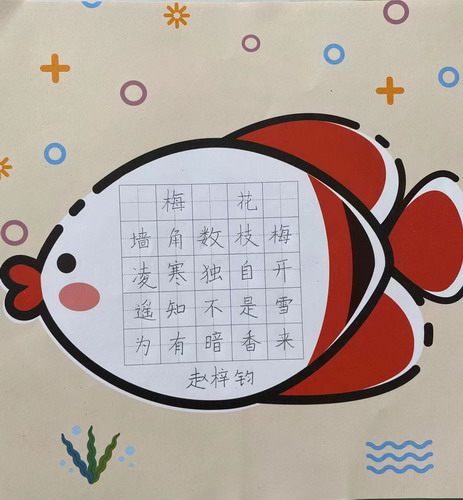 梅花
墙角数枝梅
凌寒独自开
遥知不是雪
为有暗香来
赵梓钧